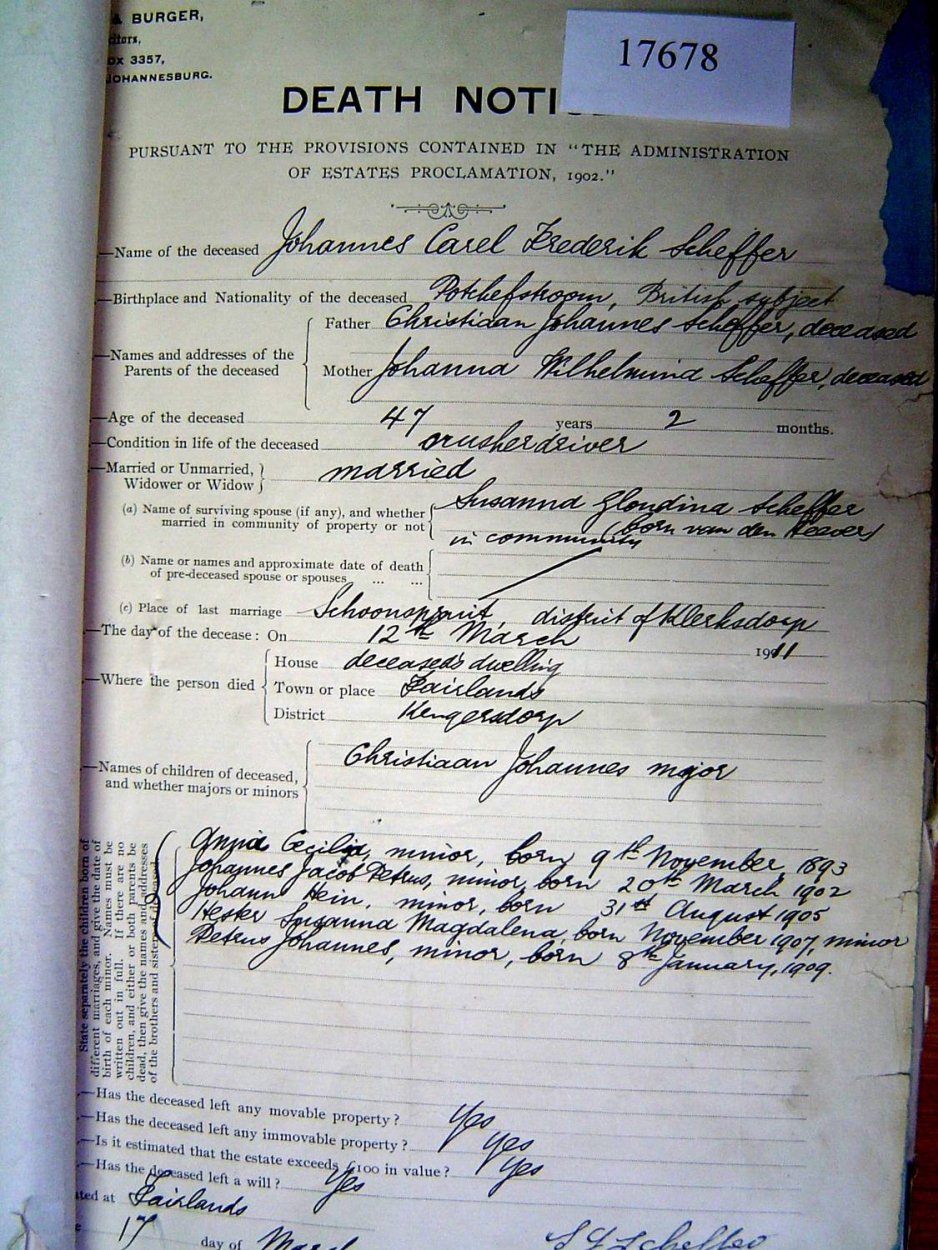 & BURGER,
17678
OX 3357,
JOHANNESBURG.
DEATH NOTI
PURSUANT TO THE PROVISIONS CONTAINED IN "THE ADMINISTRATION
OF ESTATES PROCLAMATION, 1902."
—Name of the deceased Johannes Carel Frederik Scheffer
—Birthplace and Nationality of the deceased Potchefstroom, British subject
—Names and addresses of the Parents of the deceased
Father Christiaan Johannes Scheffer, deceased
Mother Johanna Wilhelmina Scheffer, deceased
—Age of the deceased 47 years 2 months.
—Condition in life of the deceased crusherdriver
—Married or Unmarried, Widower or Widow married
(a) Name of surviving spouse (if any), and whether married in community of property or not
Susanna Glondina Scheffer
(born van den Heever)
in community
(b) Name or names and approximate date of death
of pre-deceased spouse or spouses ... ...
(c) Place of last marriage Schoonspruit, district of Klerksdorp
—The day of the decease: On 12th March 1911
—Where the person died
House deceased's dwelling
Town or place Fairlands
District
—Names of children of deceased,
and whether majors or minors
Christiaan Johannes major
State separately the children born of
different marriages, and give the date of
birth of each minor. Names must be
written out in full. If there are no
children, and either or both parents be
dead, then give the names and addresses
of the brothers and sisters
Annie Cecilia, minor, born 9th November 1893
Johannes Jacob Petrus, minor, born 20th March 1902
Johann Hein, minor, born 31st August 1905
Hester Susanna Magdalena, born November 1907, minor
Petrus Johannes, minor, born 8th January, 1909.
—Has the deceased left any movable property? Yes
—Has the deceased left any immovable property? Yes
—Is it estimated that the estate exceeds £100 in value? Yes
—Has the deceased left a will? Yes
ated at Fairlands
17 day of March
S G Scheffer